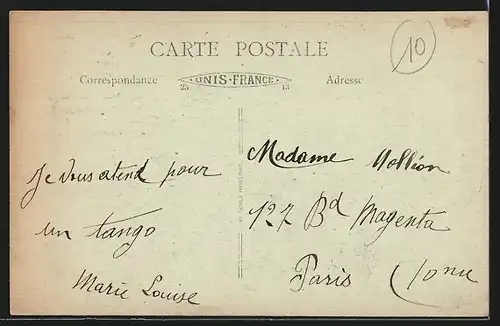 CARTE POSTALE
10
Correspondance
UNIS-FRANCE
25 13
Adresse
Je vous atend pour
un tango
Marie Louise
Madame
127 Bd Magenta
Paris